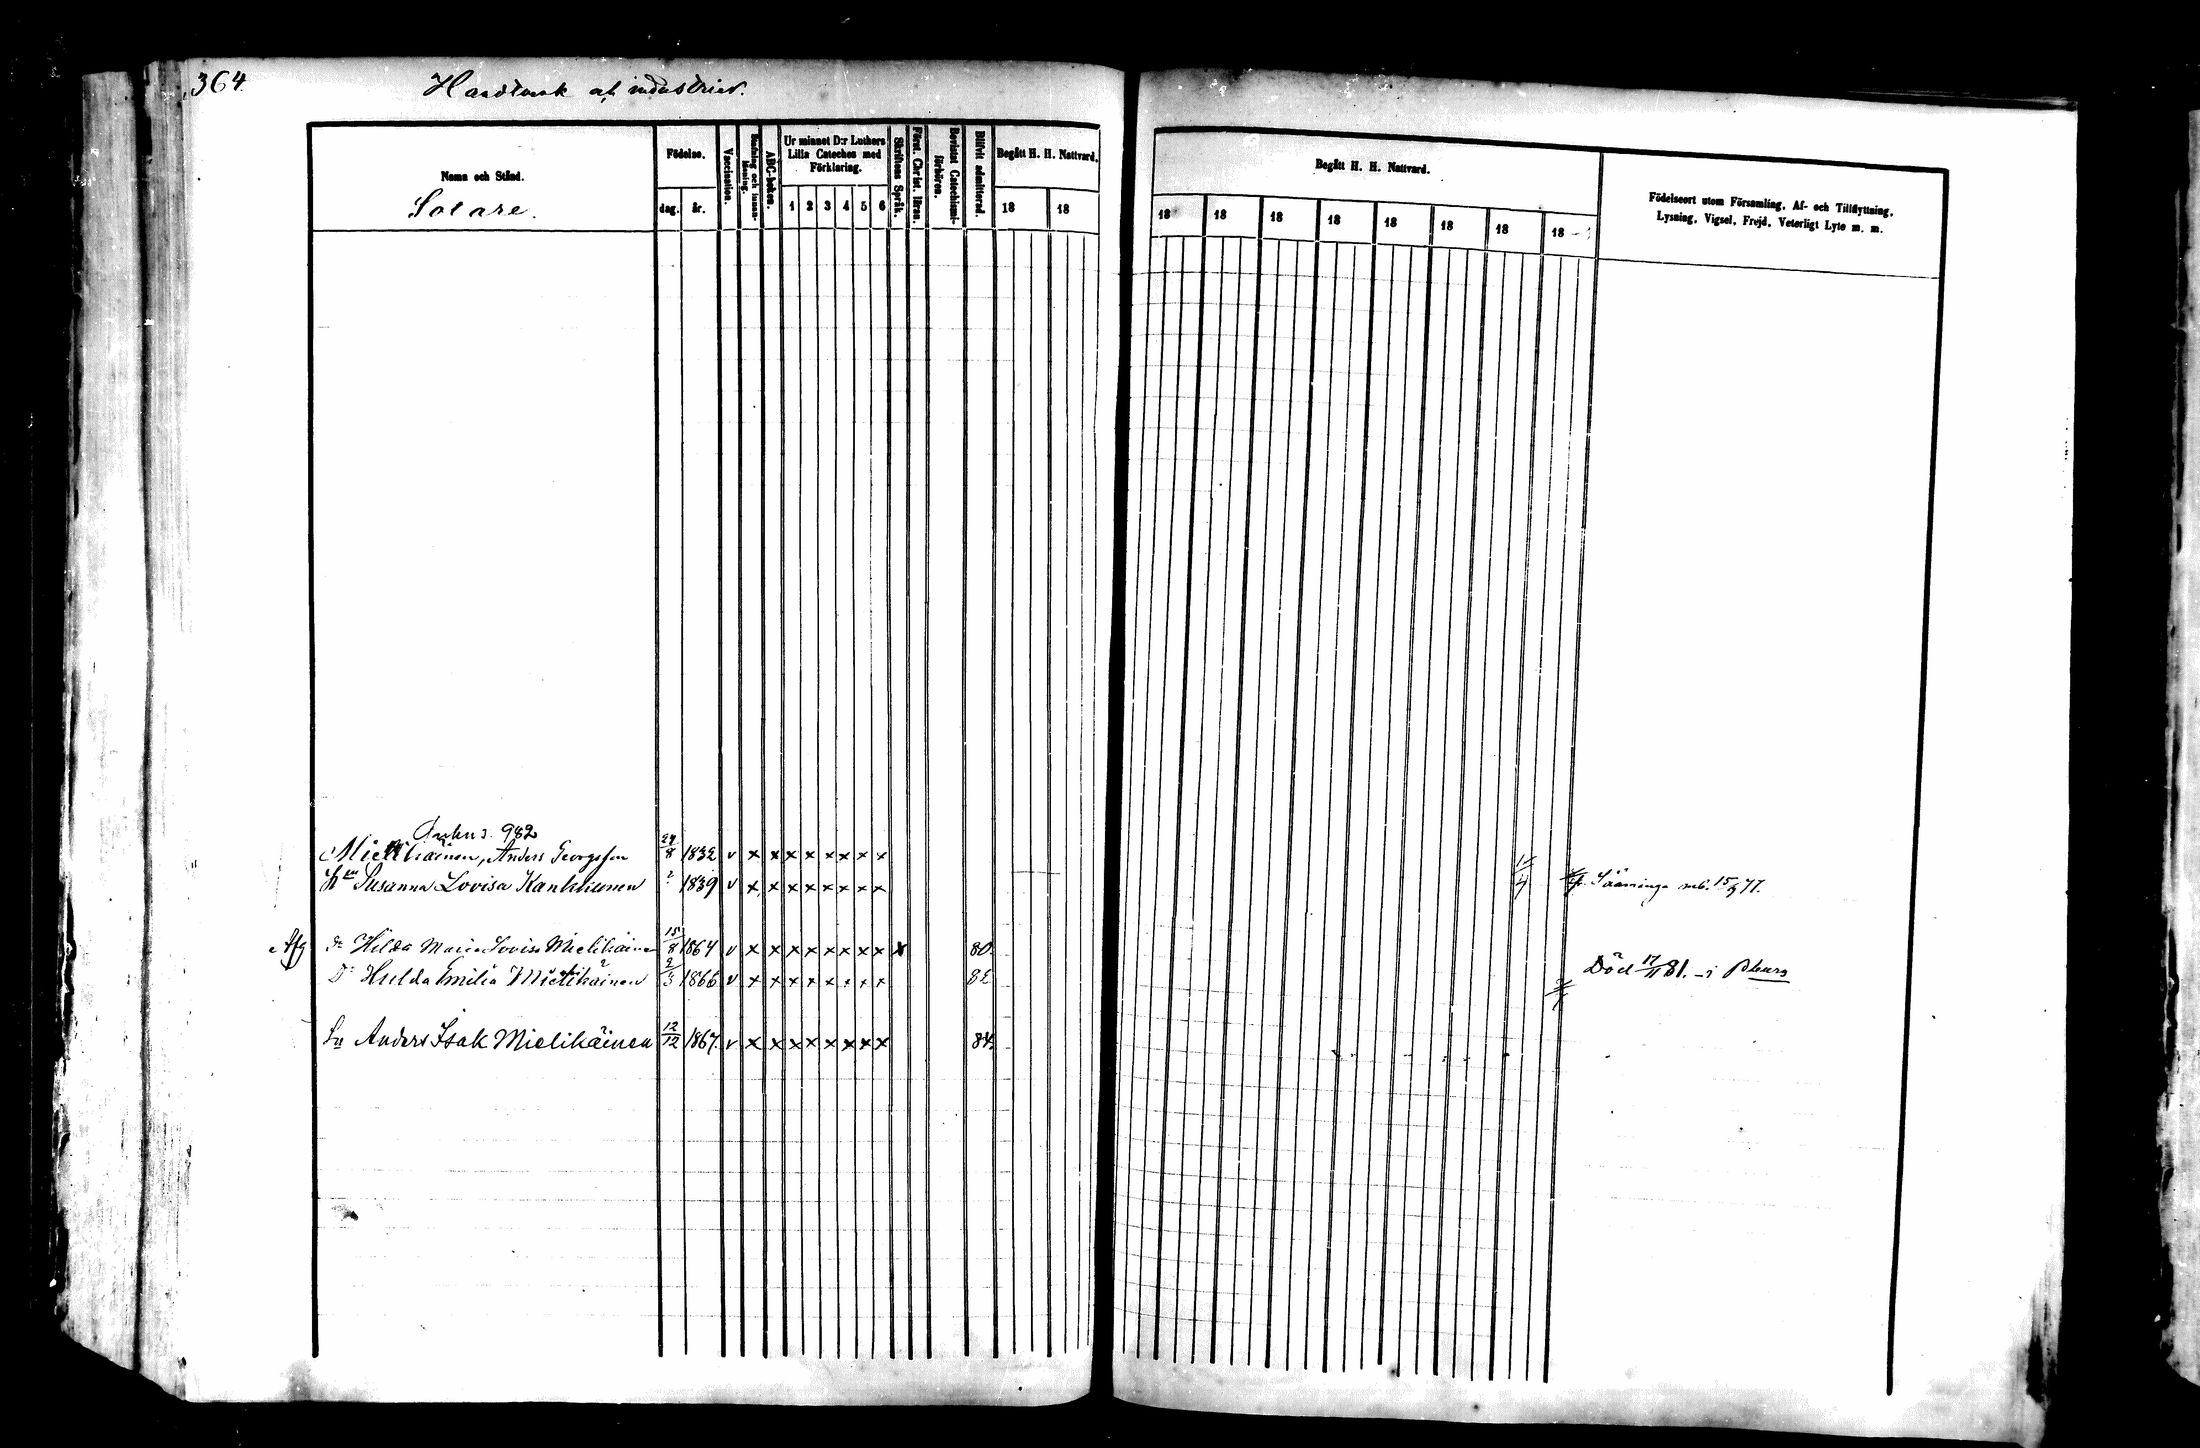 364
Handtverk och industrier.
Namn och Stånd.
Sotare.
Födelse.
dag. år.
Vaccination.
ABC-boken.
Ur minnet D:r Luthers Lilla Cateches med Förklaring.
1 2 3 4 5 6
Skriftens Språk.
Först. Christ. läran.
Bevistat Catechismi-förhören.
Blifvit admitterad.
Begått H. H. Nattvard.
18 18
Begått H. H. Nattvard.
18 18 18 18 18 18 18 18
Födelseort utom Församling, Af- och Tillflyttning, Lysning, Vigsel, Frejd, Veterligt Lyte m. m.
982
Mielikäinen, Anders Georgsson 24/8 1832 v x x x x x x x x
Hu Susanna Lovisa Kankkunen ? 1839 v x x x x x x x x Sääminge 15/9 77.
Afg dr Hilda Maria Lovisa Mielikäinen 15/8 1864 v x x x x x x x x x 80.
Dr Hulda Emilia Mielikäinen 2/3 1866 v x x x x x x x x 82 Död 17/11 81. i Pburg
Sn Anders Isak Mielikäinen 12/12 1867. v x x x x x x x x 84.